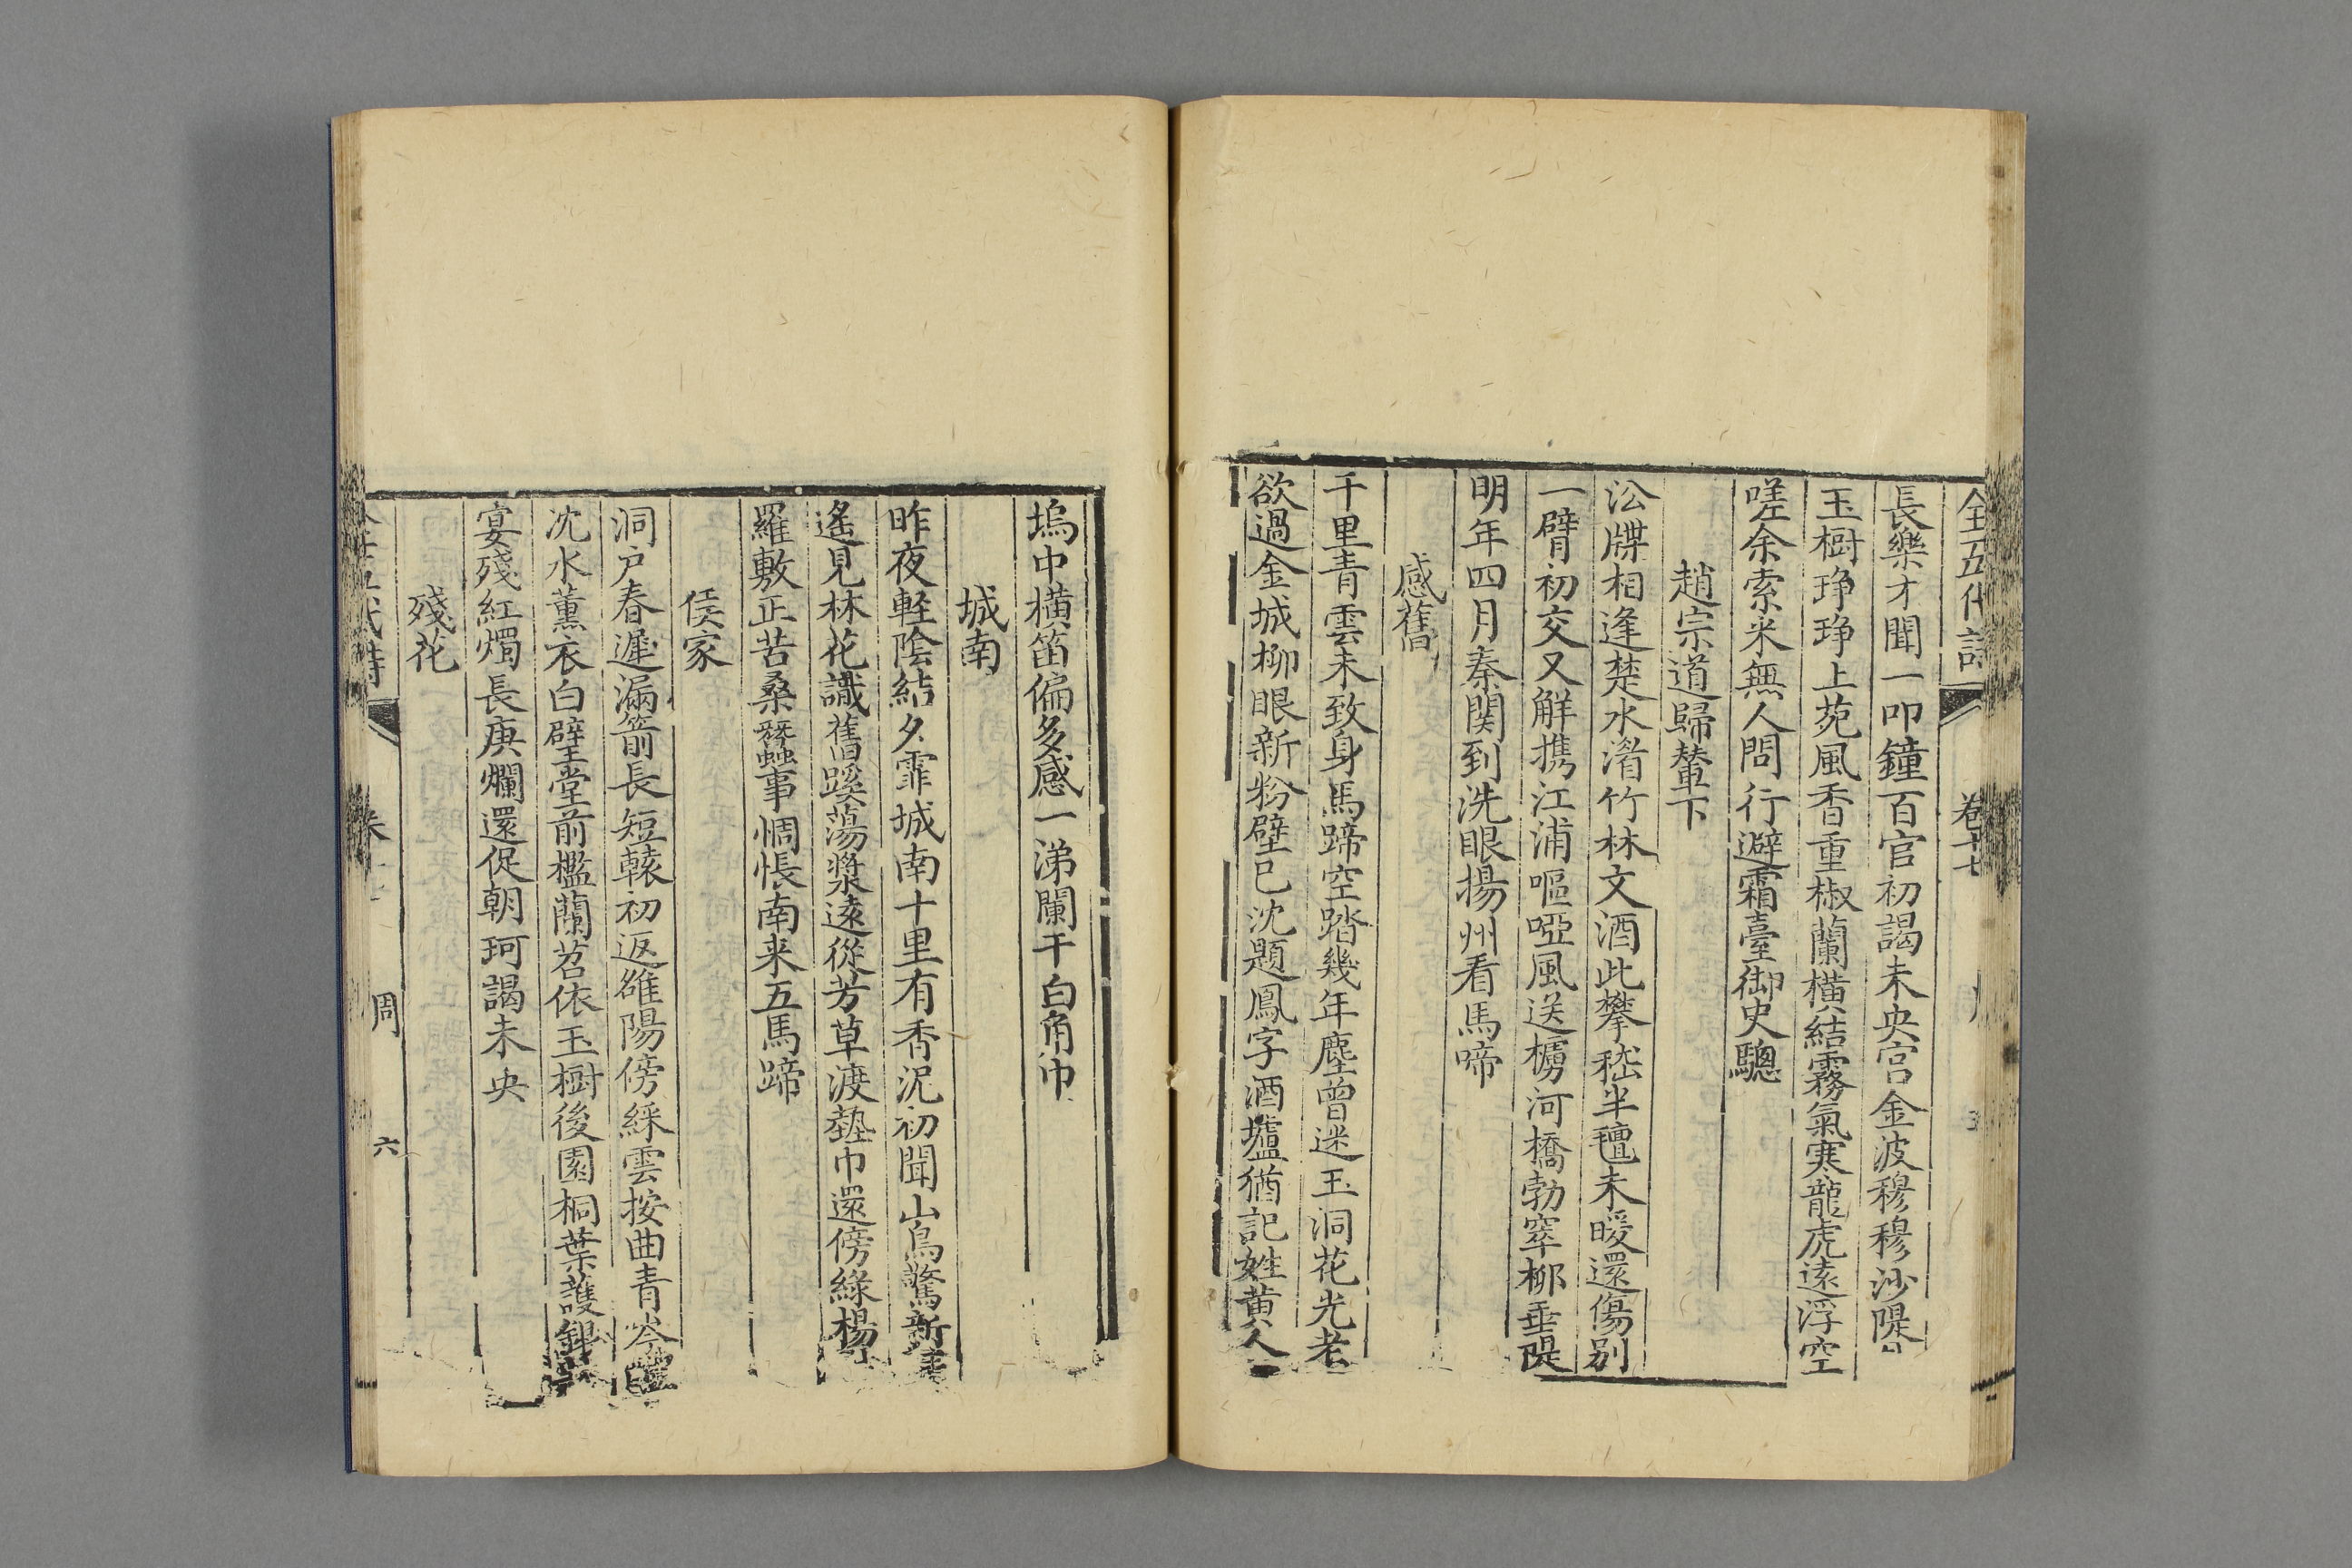 全五代詩 卷十七
長樂才聞一叩鐘百官初謁未央宮金波穆穆沙隄
玉樹琤琤上苑風香重椒蘭橫結霧氣寒龍虎遠浮空
嗟余索米無人問行避霜臺御史驄
趙宗道歸輦下
訟牒相逢楚水湄竹林文酒此攀嵇半氊未暖還傷別
一臂初交又解携江浦嘔啞風送櫓河橋勃窣柳垂隄
明年四月秦関到洗眼揚州看馬啼
感舊
千里青雲未致身馬蹄空踏幾年塵曾迷玉洞花光老
欲過金城柳眼新粉壁已沈題鳳字酒壚猶記姓黃人
塢中橫笛偏多感一涕闌干白角巾
城南
昨夜軽陰結夕霏城南十里有香泥初聞山鳥驚新
遙見林花識舊蹊蕩漿遠從芳草渡墊巾還傍綠楊
羅敷正苦桑蠶事惆悵南来五馬蹄
侯家
洞户春遲漏箭長短轅初返雒陽傍綵雲按曲青岑醴
沈水薰衣白璧堂前檻蘭苕依玉樹後園桐葉護銀
宴殘紅燭長庚爛還促朝珂謁未央
殘花
周 六